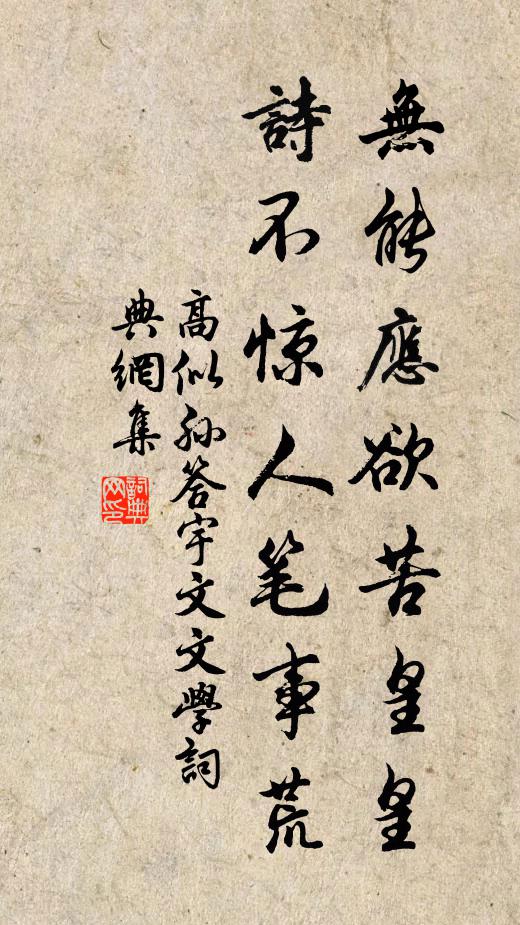 無能應欲苦皇皇
詩不惊人笔事荒
高似孙答宇文文學詞
典網集
詞典
网印